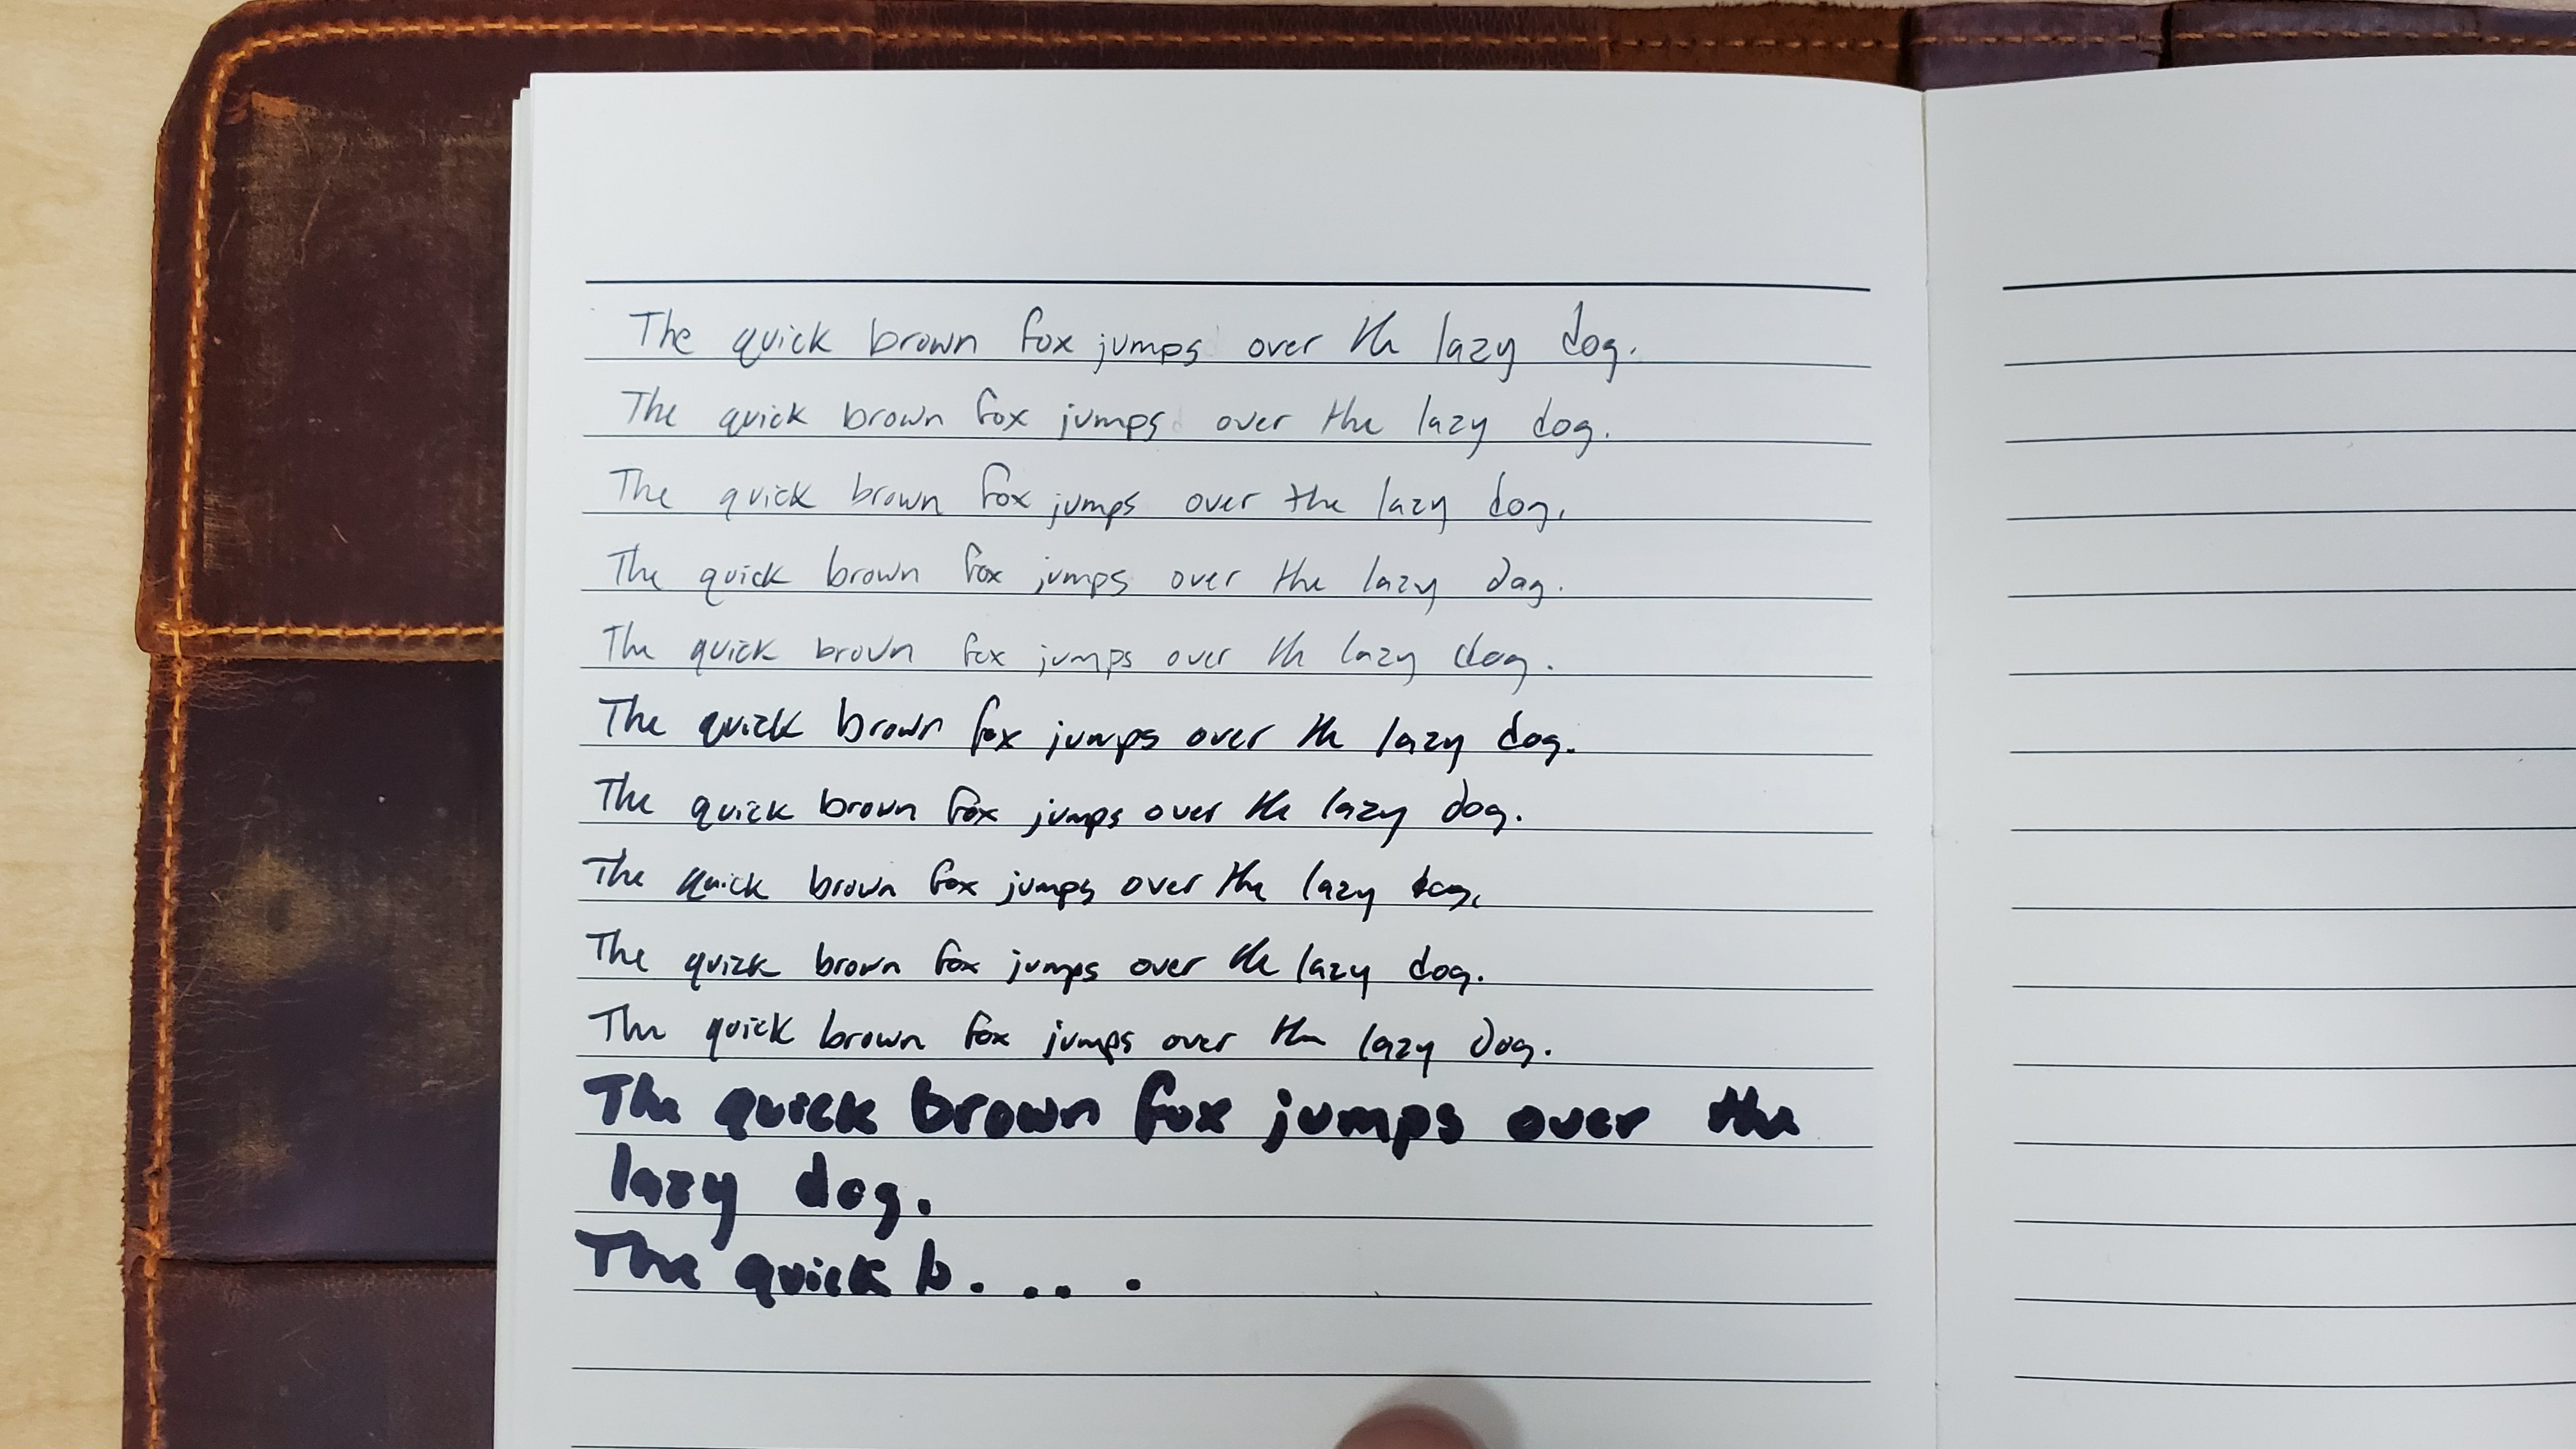 The quick brown fox jumps over the lazy dog.
The quick brown fox jumps over the lazy dog.
The quick brown fox jumps over the lazy dog.
The quick brown fox jumps over the lazy dog.
The quick brown fox jumps over the lazy dog.
The quick brown fox jumps over the lazy dog.
The quick brown fox jumps over the lazy dog.
The quick brown fox jumps over the lazy dog.
The quick brown fox jumps over the lazy dog.
The quick brown fox jumps over the lazy dog.
The quick brown fox jumps over the
lazy dog.
The quick b....